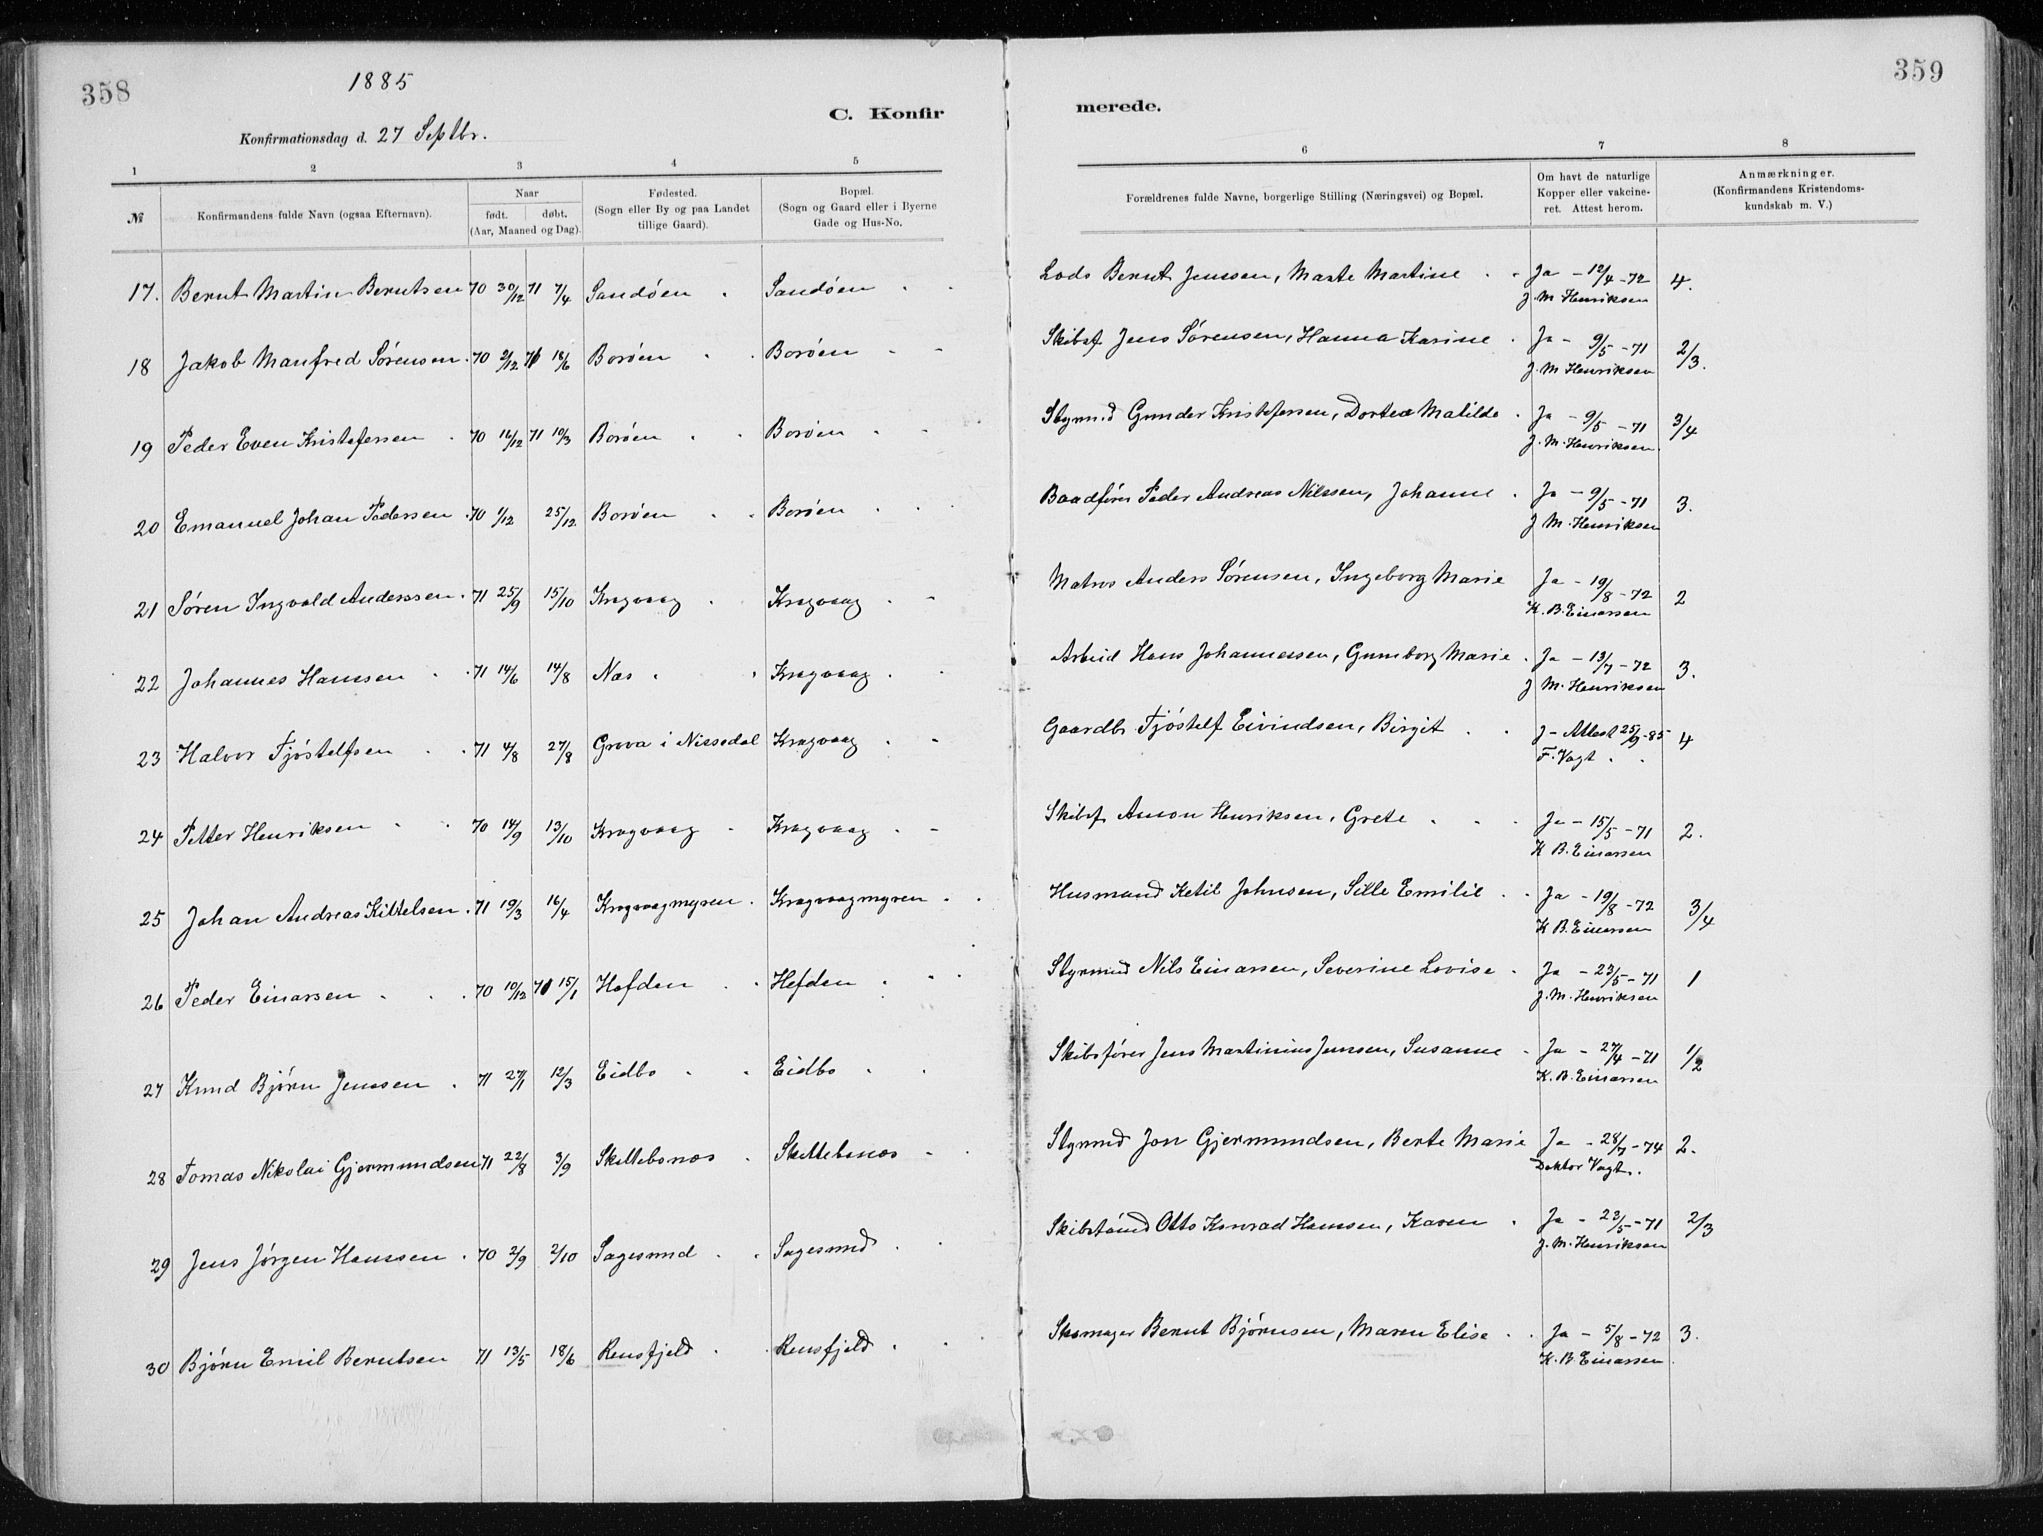 358
1885
C. Konfir
merede.
359
Konfirmationsdag d. 27 Septbr.
1 2 3 4 5 6 7 8
№ Konfirmandens fulde Navn (ogsaa Efternavn). Naar født. døbt. (Aar, Maaned og Dag). Fødested. (Sogn eller By og paa Landet tillige Gaard). Bopæl. (Sogn og Gaard eller i Byerne Gade og Hus-No. Forældrenes fulde Navne, borgerlige Stilling (Næringsvei) og Bopæl. Om havt de naturlige Kopper eller vakcineret. Attest herom. Anmærkninger. (Konfirmandens Kristendomskundskab m. V.)
17. Bernt Martin Berntsen 70 30/12 71 7/4 Sandøen Sandøen Lods Bernt Jenssen, Marte Martine Ja - 12/4 - 72 4.
J. M Henriksen
18 Jakob Manfred Sørensen 70 2/12 71 18/6 Borøen Borøen Skibsf Jens Sørensen, Hanna Karine Ja - 9/5 - 71 2/3.
J. M Henriksen
19 Peder Even Kristofersen 70 16/12 71 10/3 Borøen Borøen Styrmd Gunder Kristofersen, Dortea Matilde Ja - 9/5 - 71 3/4
J. M. Henriksen
20 Emanuel Johan Pederssen 70 1/12 25/12 Borøen Borøen Baadfører Peder Andreas Nilssen, Johanne Ja - 9/5 - 71 3.
J M. Henriksen
21 Søren Ingvald Anderssen 71 25/9 15/10 Kragvaag Kragvaag Matros Anders Sørensen, Ingeborg Marie Ja - 19/8 - 72 2
K. B. Einarssen
22 Johannes Hanssen 71 14/6 14/8 Næs Kragvaag Arbeid Hans Johannessen, Gunnborg Marie Ja - 13/7 - 72 3.
J M. Henriksen
23 Halvor Tjøstelfsen 71 4/8 27/8 Grova i Nissedal Kragvaag Gaardbr Tjøstelf Eivindsen, Birgit J - Attest 25/9 - 85 4
F. Vogt
24 Petter Henriksen 70 14/9 13/10 Kragvaag Kragvaag Skibsf Anton Henriksen, Grete Ja - 15/5 - 71 2.
K B. Einarssen
25 Johan Andreas Kittelsen 71 19/3 16/4 Kragvaagmyren Kragvaagmyren Husmand Ketil Johnsen, Sille Emilie Ja - 19/8 - 72 3/4
K B. Einarssen
26 Peder Einarsen 70 10/12 71 15/1 Hefden Hefden Styrmd Nils Einarsen, Severine Lovise Ja - 23/5 - 71 1
J. M. Henriksen
27 Knud Bjørn Jenssen 71 27/1 12/3 Eidbo Eidbo Skibsfører Jens Martinius Jenssen, Susanne Ja - 27/4 - 71 1/2
K. B. Einarssen
28 Tomas Nikolai Gjermundsen 71 22/8 3/9 Skettebonæs Skettebonæs Styrmd Jon Gjermundsen, Berte Marie Ja - 28/7 - 74 2.
Doktor Vogt.
29 Jens Jørgen Hanssen 70 2/9 2/10 Sagesund Sagesund Skibstømd Otto Konrad Hanssen, Karen Ja - 23/5 - 71 2/3
J. M. Henriksen
30 Bjørn Emil Berntsen 71 13/5 18/6 Rensfjeld Rensfjeld Skomager Bernt Bjørnsen, Maren Elise Ja - 5/8 - 72 3.
K. B Einarssen